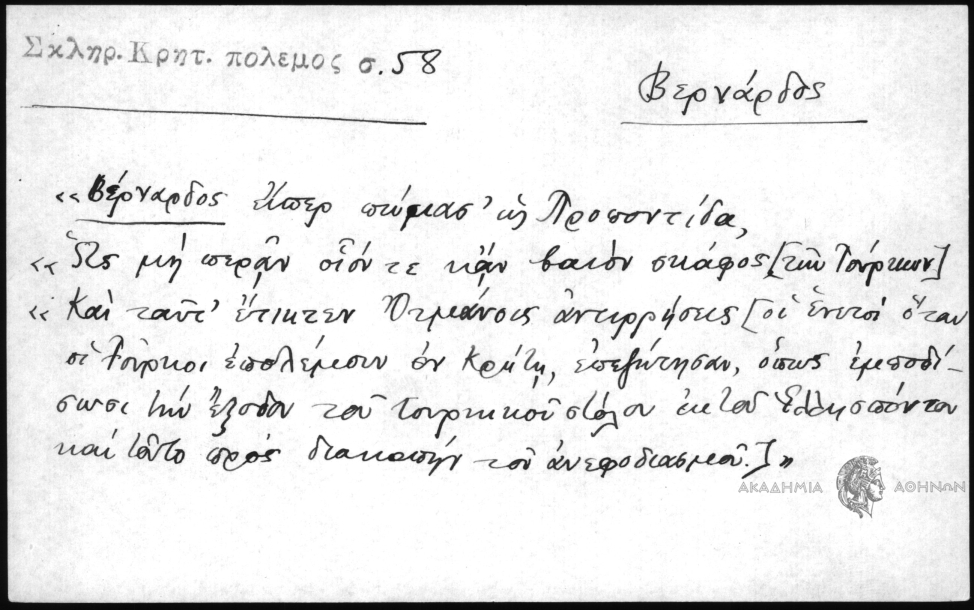 Σκληρ. Κρητ. πολεμος σ. 58
Βερνάρδος
«Βέρναρδος εἷπερ πώμασ' ὡς Προποντίδα,
« Ὡς μὴ περᾶν οἷόν τε κἂν βαιὸν σκάφος [τῶν Τούρκων]
« Καὶ ταῦτ' ἔτικτεν Ὀτμάνοις ἀντιρρήσεις [οἱ ἑνετοὶ ὅταν
οἱ Τοῦρκοι ἐπολέμουν ἐν Κρήτῃ, ἐπεζήτησαν, ὅπως ἐμποδί-
σωσι τὴν ἔξοδον τοῦ τουρκικοῦ στόλου ἐκ τοῦ Ἑλλησπόντου
καὶ τοῦτο πρὸς διακοπὴν τοῦ ἀνεφοδιασμοῦ.]»
ΑΚΑΔΗΜΙΑ ΑΘΗΝΩΝ